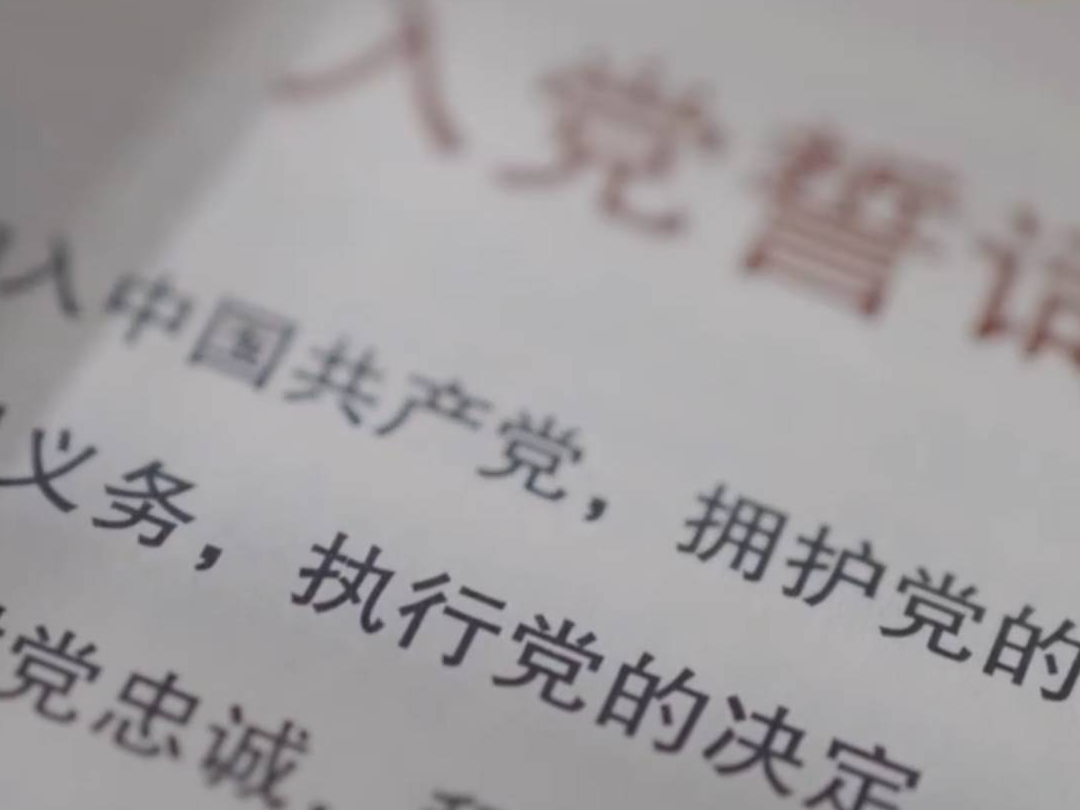 入党誓词
入中国共产党，拥护党的
义务，执行党的决定
党忠诚，